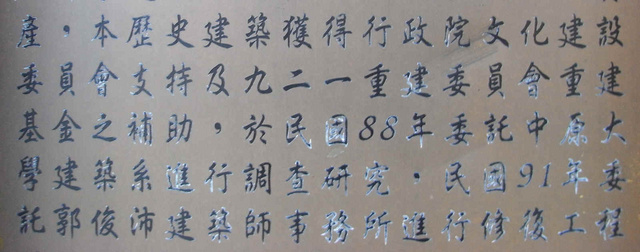 產，本歷史建築獲得行政院文化建設
委員會支持及九二一重建委員會重建
基金之補助，於民國88年委託中原大
學建築系進行調查研究。民國91年委
託郭俊沛建築師事務所進行修復工程